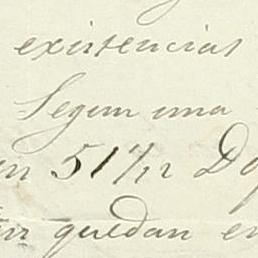 existencias
Segun una
en 51 7/12 Do
quedan en